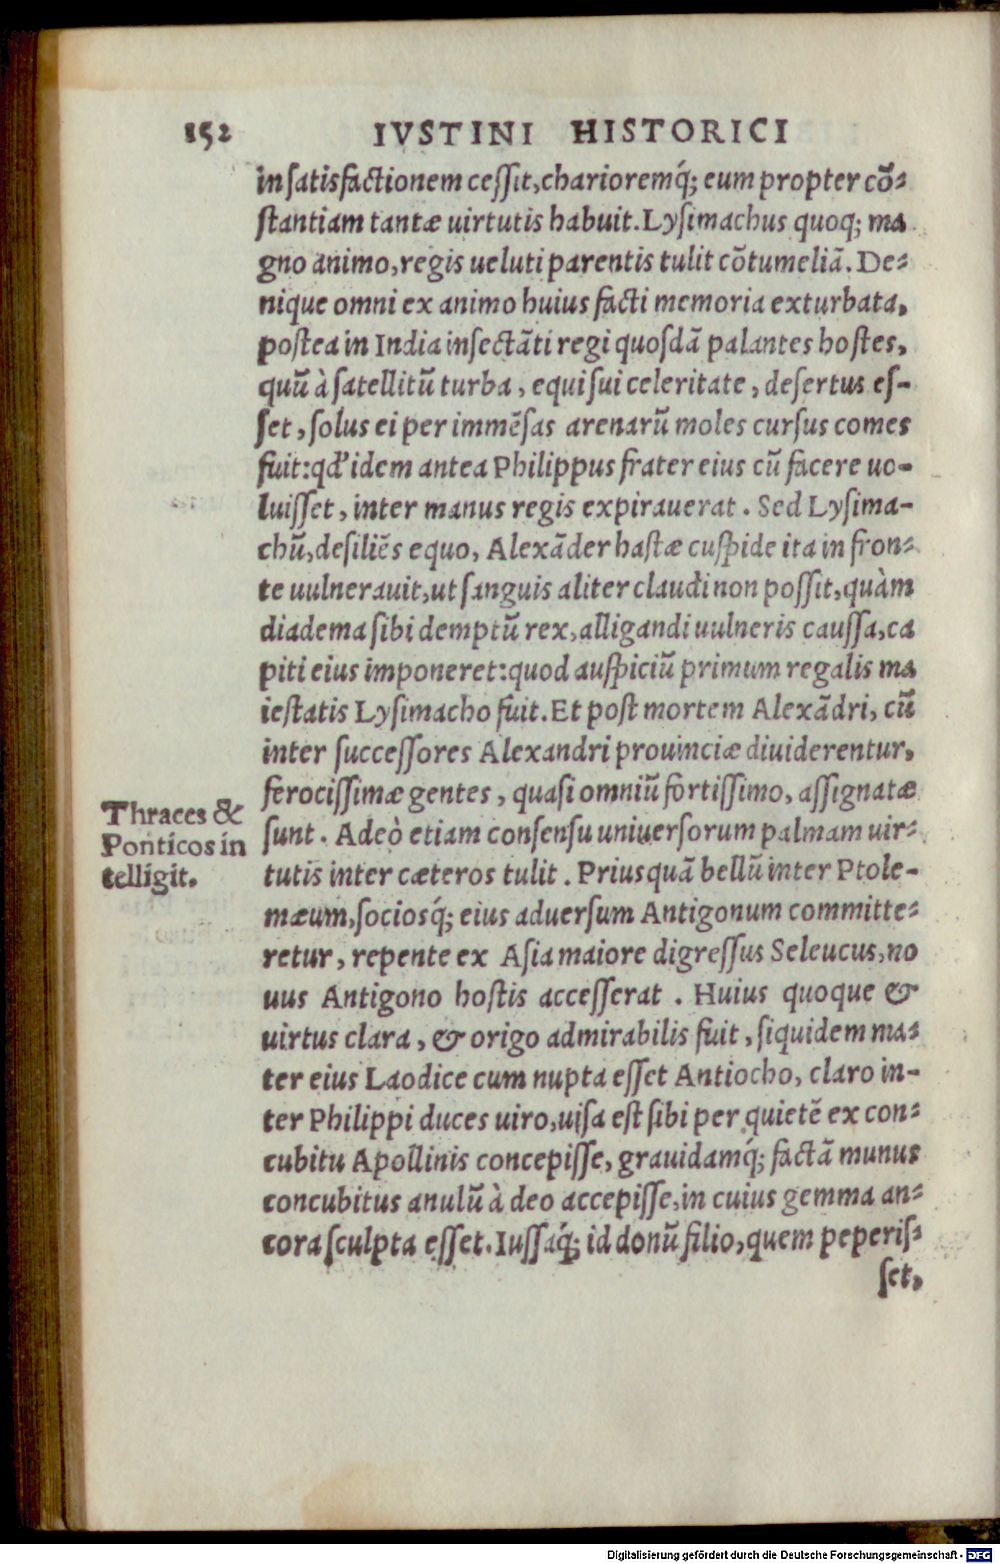 152 IVSTINI HISTORICI
in satisfactionem cessit, charioremq́; eum propter cõ-
stantiam tantæ uirtutis habuit. Lysimachus quoq; ma
gno animo, regis ueluti parentis tulit cõtumeliã. De-
nique omni ex animo huius facti memoria exturbata,
postea in India insectãti regi quosdã palantes hostes,
quũ à satellitũ turba, equi sui celeritate, desertus es-
set, solus ei per immẽsas arenarũ moles cursus comes
fuit: qd' idem antea Philippus frater eius cũ facere uo-
luisset, inter manus regis expirauerat. Sed Lysima-
chũ, desiliẽs equo, Alexãder hastæ cuspide ita in fron-
te uulnerauit, ut sanguis aliter claudi non possit, quàm
diadema sibi demptũ rex, alligandi uulneris caussa, ca
piti eius imponeret: quod auspiciũ primum regalis ma
iestatis Lysimacho fuit. Et post mortem Alexãdri, cũ
inter successores Alexandri prouinciæ diuiderentur,
ferocissimæ gentes, quasi omniũ fortissimo, assignatæ
sunt. Adeò etiam consensu uniuersorum palmam uir-
tutis inter cæteros tulit. Priusquã bellũ inter Ptole-
mæum, sociosq́; eius aduersum Antigonum committe-
retur, repente ex Asia maiore digressus Seleucus, no
uus Antigono hostis accesserat. Huius quoque &
uirtus clara, & origo admirabilis fuit, siquidem ma-
ter eius Laodice cum nupta esset Antiocho, claro in-
ter Philippi duces uiro, uisa est sibi per quietẽ ex con-
cubitu Apollinis concepisse, grauidamq́; factã munus
concubitus anulũ à deo accepisse, in cuius gemma an-
cora sculpta esset. Iussaq́; id donũ filio, quem peperis-
set,
Thraces &
Ponticos in
telligit.
Digitalisierung gefördert durch die Deutsche Forschungsgemeinschaft - DFG